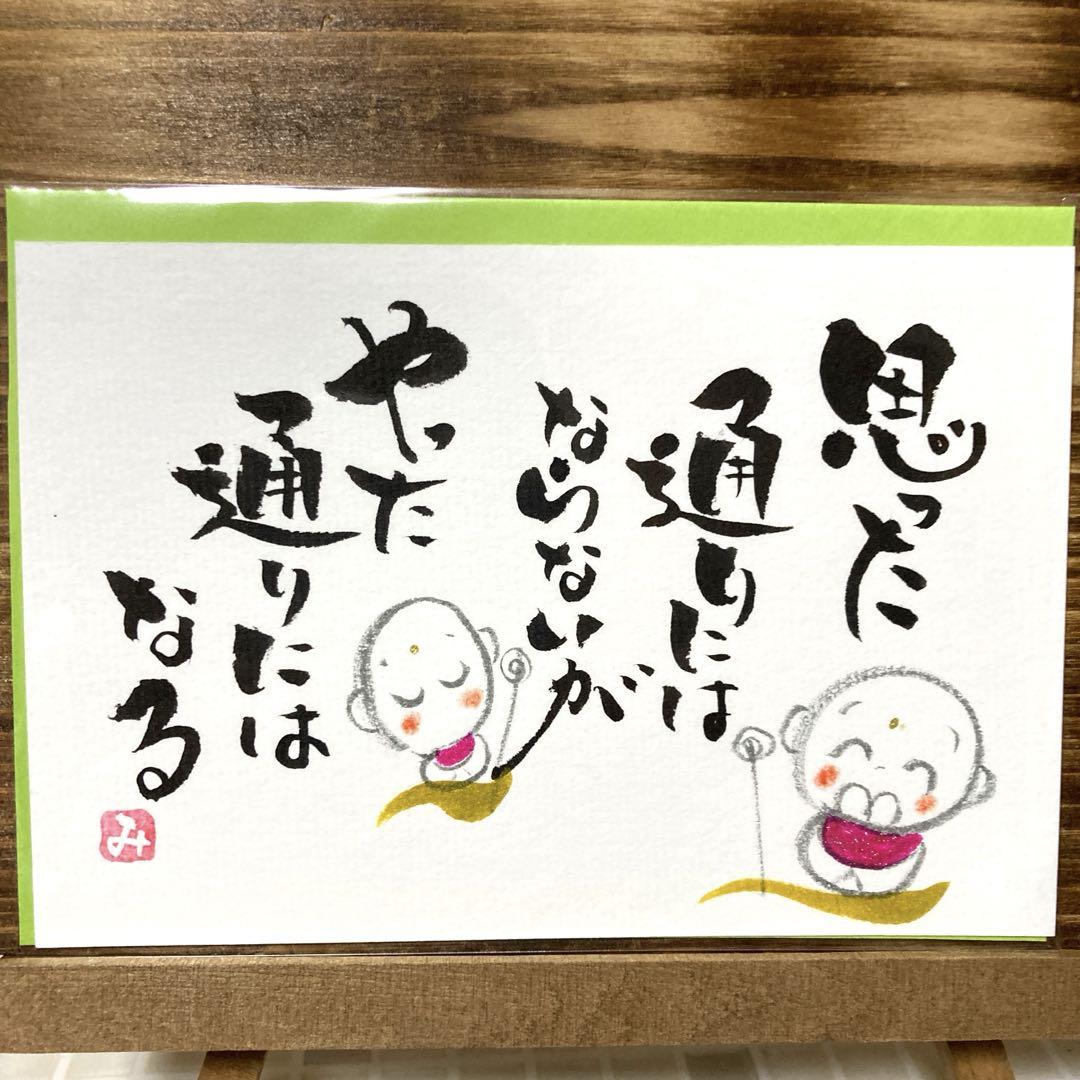 思った
通りには
ならないが
やった
通りには
なる
み